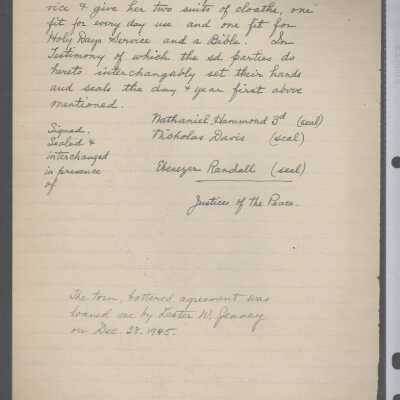 vice & give her two suits of cloaths, one
fit for every day use and one fit for
Holy Days & Service and a Bible. In
Testimony of which the sd. parties do
hereto interchangably set their hands
and seals the day & year first above
mentioned.
Nathaniel Hammond 3d (seal)
Nicholas Davis (seal)
Signed,
Sealed &
interchanged
in presence
of
Ebenezer Randall (seal)
Justices of the Peace.
The torn, battered agreement was
loaned me by Lester W. Jenney
on Dec. 28. 1945.